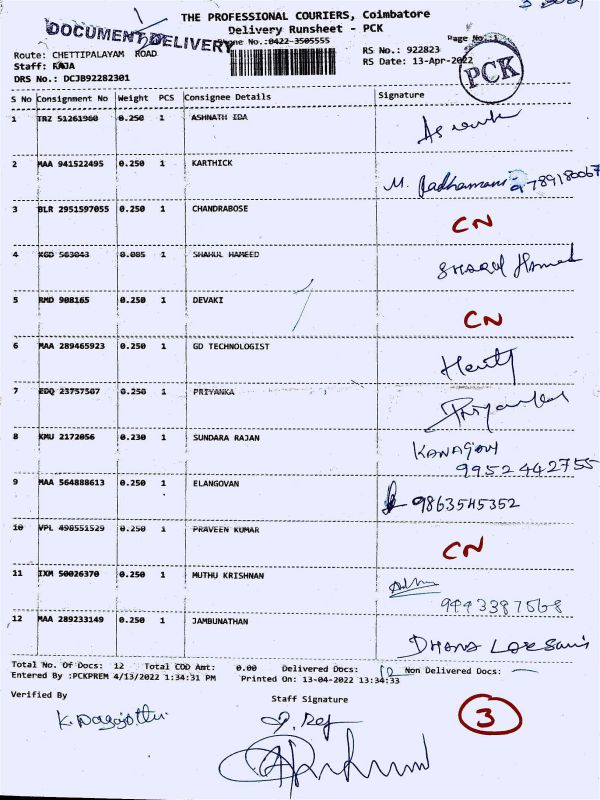 THE PROFESSIONAL COURIERS, Coimbatore
DOCUMENT DELIVERY
Delivery Runsheet - PCK
Phone No.:0422-3505555
Page No.:1
Route: CHETTIPALAYAM ROAD
RS No.: 922823
Staff: RAJA
RS Date: 13-Apr-2022
DRS No.: DCJB92282301
PCK
S No Consignment No Weight PCS Consignee Details Signature
1 TRZ 51261960 0.250 1 ASHNATH IDA
2 MAA 941522495 0.250 1 KARTHICK M. Padhamani 9789180067
3 BLR 2951597055 0.250 1 CHANDRABOSE CN
4 KGD 563043 0.085 1 SHAHUL HAMEED
5 RMD 908165 0.250 1 DEVAKI CN
6 MAA 289465923 0.250 1 GD TECHNOLOGIST
7 EDQ 23757507 0.250 1 PRIYANKA Priyanka
8 KMU 2172056 0.230 1 SUNDARA RAJAN
9952442755
9 MAA 564888613 0.250 1 ELANGOVAN 9863545352
10 VPL 498551529 0.250 1 PRAVEEN KUMAR CN
11 IXM 50026370 0.250 1 MUTHU KRISHNAN
9443387568
12 MAA 289233149 0.250 1 JAMBUNATHAN DHANA
Total No. Of Docs: 12 Total COD Amt: 0.00 Delivered Docs: Non Delivered Docs:
Entered By :PCKPREM 4/13/2022 1:34:31 PM Printed On: 13-04-2022 13:34:33
Verified By Staff Signature
3